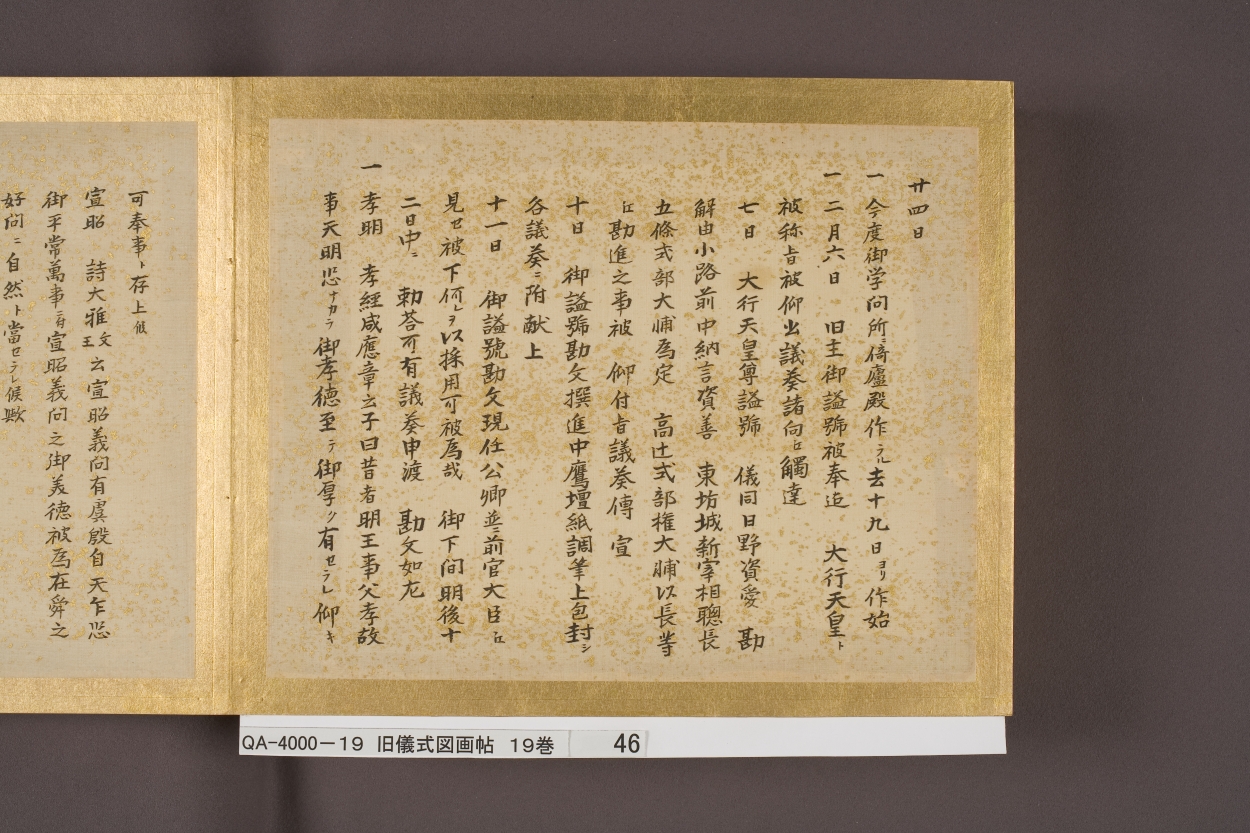 廿四日
一 今度御学問所ニ倚廬殿作ラル去十九日ヨリ作始
一 二月六日 旧主御諡號被奉送 大行天皇ト
被称旨被仰出議奏諸向江觸達
七日 大行天皇尊諡號 儀同日野資愛 勘
解由小路前中納言資善 東坊城新宰相聰長
五條式部大輔為定 高辻式部権大輔以長等
江勘進之事被 仰付旨議奏傳 宣
十日 御諡號勘文撰進中鷹壇紙調筆上包封シ
各議奏ニ附献上
十一日 御諡號勘文現任公卿並ニ前官大臣江
見セ被下何レヲ以採用可被為哉 御下問明後十
二日中ニ 勅荅可有議奏申渡 勘文如左
一 孝明 孝經咸應章云子曰昔者明王事父孝故
事天明悲ナカラ御孝徳至テ御厚ク有セラレ仰キ
可奉事ト存上候
宣昭 詩大雅文王云宣昭義問有虞殷自天乍悲
御平常萬事ニ付宣昭義問之御美徳被為在舜之
好問ニ自然ト當セラレ候歟
QA-4000-19 旧儀式図画帖 19巻 46